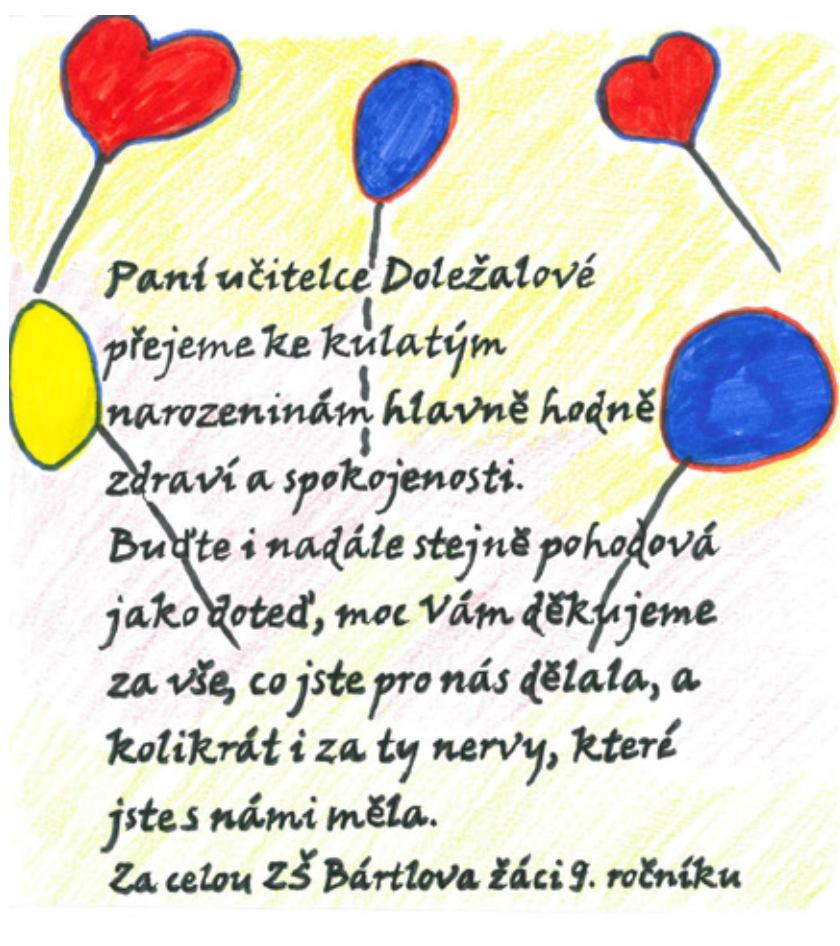 Paní učitelce Doležalové
přejeme ke kulatým
narozeninám hlavně hodně
zdraví a spokojenosti.
Buďte i nadále stejně pohodová
jako doteď, moc Vám děkujeme
za vše, co jste pro nás dělala, a
kolikrát i za ty nervy, které
jste s námi měla.
Za celou ZŠ Bártlova žáci 9. ročníku